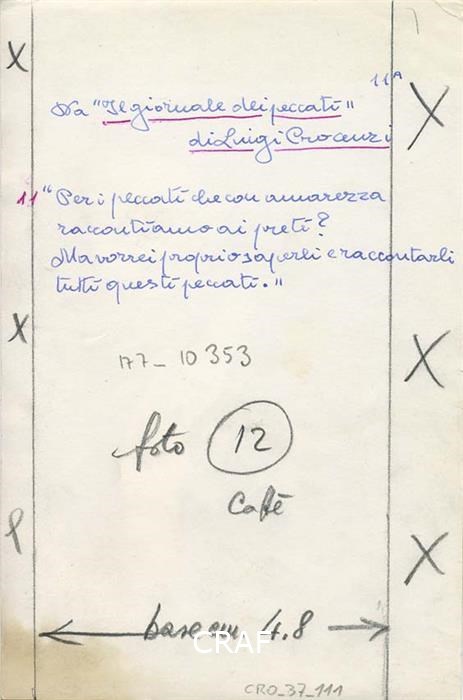 11A
Da "Il giornale dei peccati"
di Luigi Crocenzi
11 "Per i peccati che con amarezza
raccontiamo ai preti?
Ma vorrei proprio saperli e raccontarli
tutti questi peccati."
177-10353
foto 12
Cafè
base cm 4.8
CRAF
CRO_37_111